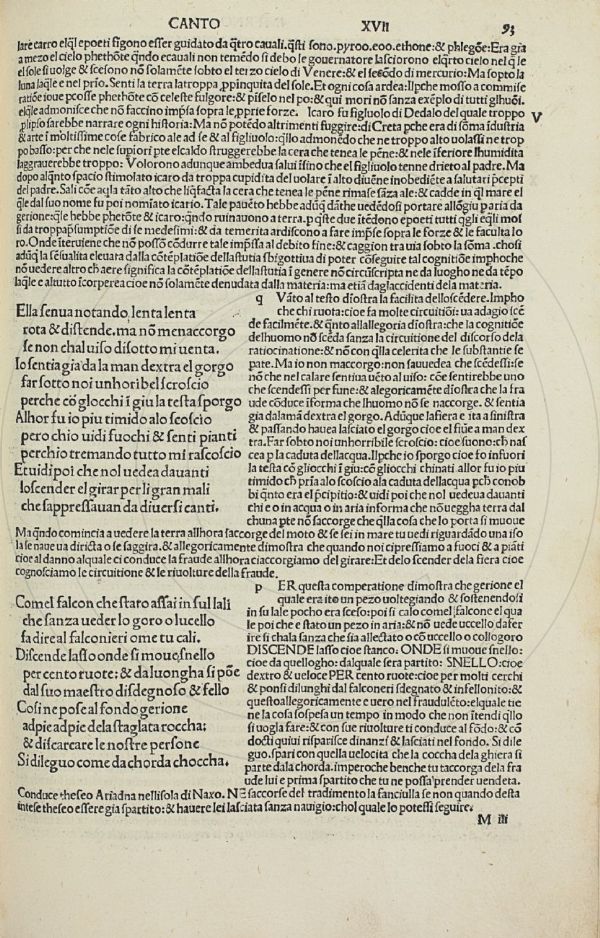 CANTO XVII 93
lare carro elq̃l epoeti figono esser guidato da q̃tro cauali. q̃sti sono. pyroo. eoo. ethone: & phlegõe: Era gia
a mezo el cielo phethõte q̃ndo ecauali non temẽdo si debo le gouernatore lasciorono elq̃rto cielo nel q̃le
el sole si uolge & scesono nõ solamẽte sobto el terzo cielo di Venere: & el secõdo di mercurio: Ma sopto la
luna laq̃le e nel prio. Senti la terra la troppa ꝓpinquita del sole. Et ogni cosa ardea: Ilpche mosso a commise
ratiõe ioue pcosse phethõte cõ celeste fulgore: & piselo nel po: & qui mori nõ sanza exẽplo di tutti glhuoĩ.
elq̃le admonisce che nõ faccino impsa sopra le ꝓprie forze. Icaro fu figluolo di Dedalo del quale troppo
ꝓlipso sarebbe narrare ogni historia: Ma nõ potẽdo altrimenti fuggire: di Creta pche era di sõma ĩdustria
& arte ĩ moltissime cose fabrico ale ad se & al figluolo: q̃llo admonẽdo che ne troppo alto uolassi ne trop
po basso: per che nele supiori pte el caldo struggerebbe la cera che tenea le pẽne: & nele ĩferiore lhumidita
laggrauerebbe troppo: Volorono adunque ambedua salui ĩsino che el figluolo tenne drieto al padre. Ma
dopo alq̃nto spacio stimolato icaro da troppa cupidita del uolare ĩ alto diuẽne inobediẽte a salutari p̃cepti
del padre. Sali cõe aq̃la tãto alto che liq̃facta la cera che tenea le pẽne rimase sãza ale: & cadde in q̃l mare el
q̃le dal suo nome fu poi nomĩato icario. Tale pauẽto hebbe adũq̃ dãthe uedẽdosi portare allõgiu p aria da
gerione: q̃le hebbe phetõte & icaro: q̃ndo ruinauono a terra. p q̃ste due ĩtẽdono epoeti tutti q̃gli eq̃li mos
si da troppa p̃sumptiõe di se medesimi: & da temerita ardiscono a fare imp̃se sopra le forze & le faculta lo
ro. Onde ĩteruiene che nõ possõ cõdurre tale imp̃ssa al debito fine: & caggion tra uia sobto la sõma. chosi
adũq̃ la sẽsualita eleuata dalla cõtẽplatiõe dellastutia sbigottiua di poter cõseguire tal cognitiõe imphoche
nõ uedere altro ch̃ aere significa la cõtẽplatiõe dellastutia ĩ genere nõ circũscripta ne da luogho ne da tẽpo
laq̃le e altutto ĩcorperea cioe nõ solamẽte denudata dalla materia: ma etiã daglaccidenti della materia.
V
Ella senua notando lenta lenta
rota & distende. ma nõ menaccorgo
se non chal uiso disotto mi uenta.
Io sentia gia da la man dextra el gorgo
far sotto noi unhoribel scroscio
perche cõ glocchi ĩ giu la testa sporgo
Alhor fu io piu timido alo scoscio
pero chio uidi fuochi & senti pianti
perchio tremando tutto mi rascoscio
Et uidi poi che nol uedea dauanti
lo scender el girar per li gran mali
che sappressauan da diuersi canti.
q Vãto al testo dĩostra la facilita delloscẽdere. Impho
che chi ruota: cioe fa molte circuitiõi: ua adagio scẽ
de facilmẽte. & q̃nto allallegoria dĩostra: che la cognitiõe
delhuomo nõ scẽda sanza la circuitione del discorso dela
ratiocinatione: & nõ con q̃lla celerita che le substantie se
pate. Ma io non maccorgo: non sauuedea che scẽdessi: se
nõ che nel calare sentiua uẽto al uiso: cõe sentirebbe uno
che scendessi per fune: & alegoricamẽte dĩostra che la fra
ude cõduce ĩsorma che lhuomo nõ se naccorge. & sentia
gia dalamã dextra el gorgo. Adũque lafiera e ita a sinistra
& passando hauea lasciato el gorgo cioe el fiũe a man dex
tra. Far sobto noi unhorribile scroscio: cioe suono: ch̃ nas
cea p la caduta dellacqua. Ilpche io sporgo cioe fo infuori
la testa cõ gliocchi ĩ giu: cõ gliocchi chinati. allor fu io piu
timido ch̃ pria alo scoscio ala caduta dellacqua pch̃ conob
bi q̃nto era el p̃cipitio: & uidi poi che nol uedeua dauanti
chi e o in acqua o in aria informa che nõ ueggha terra dal
chuna pte nõ saccorge che q̃lla cosa che lo porta si muoue
Ma q̃ndo comincia a uedere la terra allhora saccorge del moto & se sei in mare tu uedi riguardãdo una iso
la se naue ua diricta o se saggira. & allegoricamente dimostra che quando noi cipressiamo a fuoci & a piãti
cioe al danno alquale ci conduce la fraude allhora ciaccorgiamo del girare: Et delo scender dela fiera cioe
cognosciamo le circuitione & le riuolture della fraude.
Come l falcon che stato assai in sul lali
che sanza ueder lo goro o lucello
fa dire al falconieri ome tu cali.
Discende lasso onde si moue snello
per cento ruote: & da luongha si põe
dal suo maestro disdegnoso & fello
Cosi ne pose al fondo gerione
ad pie ad pie dela staglata roccha:
& discarcare le nostre persone
Si dileguo come da chorda choccha.
p ER questa comperatione dimostra che gerione el
quale era ito un pezo uoltegiando & sostenendosi
in su lale pocho era sceso: poi si calo come l falcone el qua
le poi che e stato un pezo in aria: & nõ uede uccello da fer
ire si chala sanza che sia allectato o cõ uccello o collogoro
DISCENDE lasso cioe stanco: ONDE si muoue snello:
cioe da quellogho: dalquale sera partito: SNELLO: cioe
dextro & ueloce PER cento ruote: cioe per molti cerchi
& ponsi dilunghi dal falconeri sdegnato & infellonito: &
questo allegoricamente e uero nel fraudulẽto: elquale tie
ne la cosa sospesa un tempo in modo che non ĩtendi q̃llo
si uogla fare: & con sue riuolture ti conduce al fõdo: & cõ
docti quiui risparisce dinanzi & lasciati nel fondo. Si dile
guo. spari con quella uelocita che la coccha dela ghiera si
parte dala chorda. imperoche benche tu taccorga dela fra
ude lui e prima spartito che tu ne possa prender uendeta.
Conduce theseo Ariadna nellisola di Naxo. NE saccorse del tradimento la fanciulla se non quando desta
intese theseo essere gia spartito: & hauere lei lasciata sanza nauigio: chol quale lo potessi seguire.
M iii